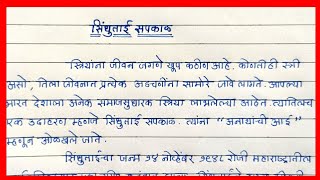 सिंधुताई सपकाळ
स्त्रियांना जीवन जगणे खूप कठीण आहे. कोणतीही स्त्री
असो, तिला जीवनात प्रत्येक अडचणींना सामोरे जावे लागते. आपल्या
भारत देशाला अनेक समाजसुधारक स्त्रिया लाभलेल्या आहेत. त्यातिलच
एक उदाहरण म्हणजे सिंधुताई सपकाळ. त्यांना "अनाथांची आई"
म्हणून ओळखले जाते.
सिंधुताईंचा जन्म १४ नोव्हेंबर १९४८ रोजी महाराष्ट्रातील